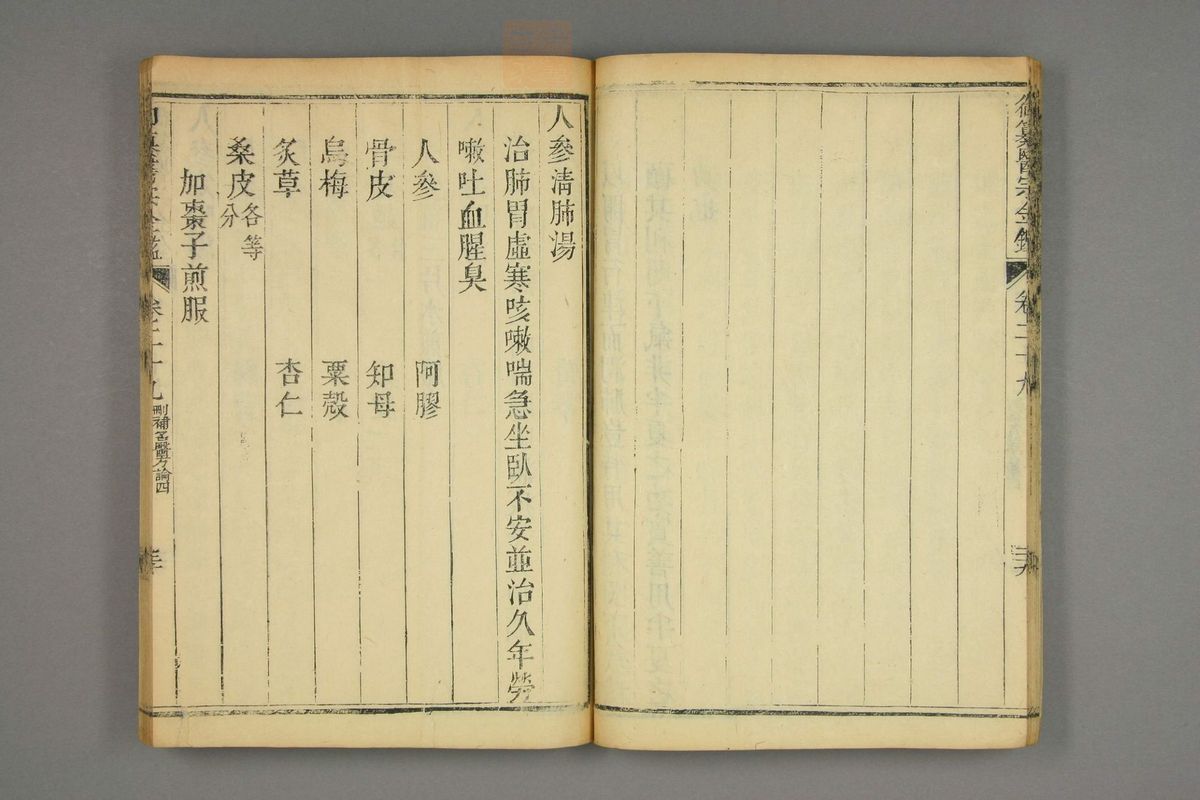 御纂醫宗金鑑
卷二十九
人參清肺湯
治肺胃虛寒咳嗽喘急坐臥不安並治久年勞
嗽吐血腥臭
人參 阿膠
骨皮 知母
烏梅 粟殼
炙草 杏仁
桑皮各等分
加棗子煎服
卷二十九 刪補名醫方論四